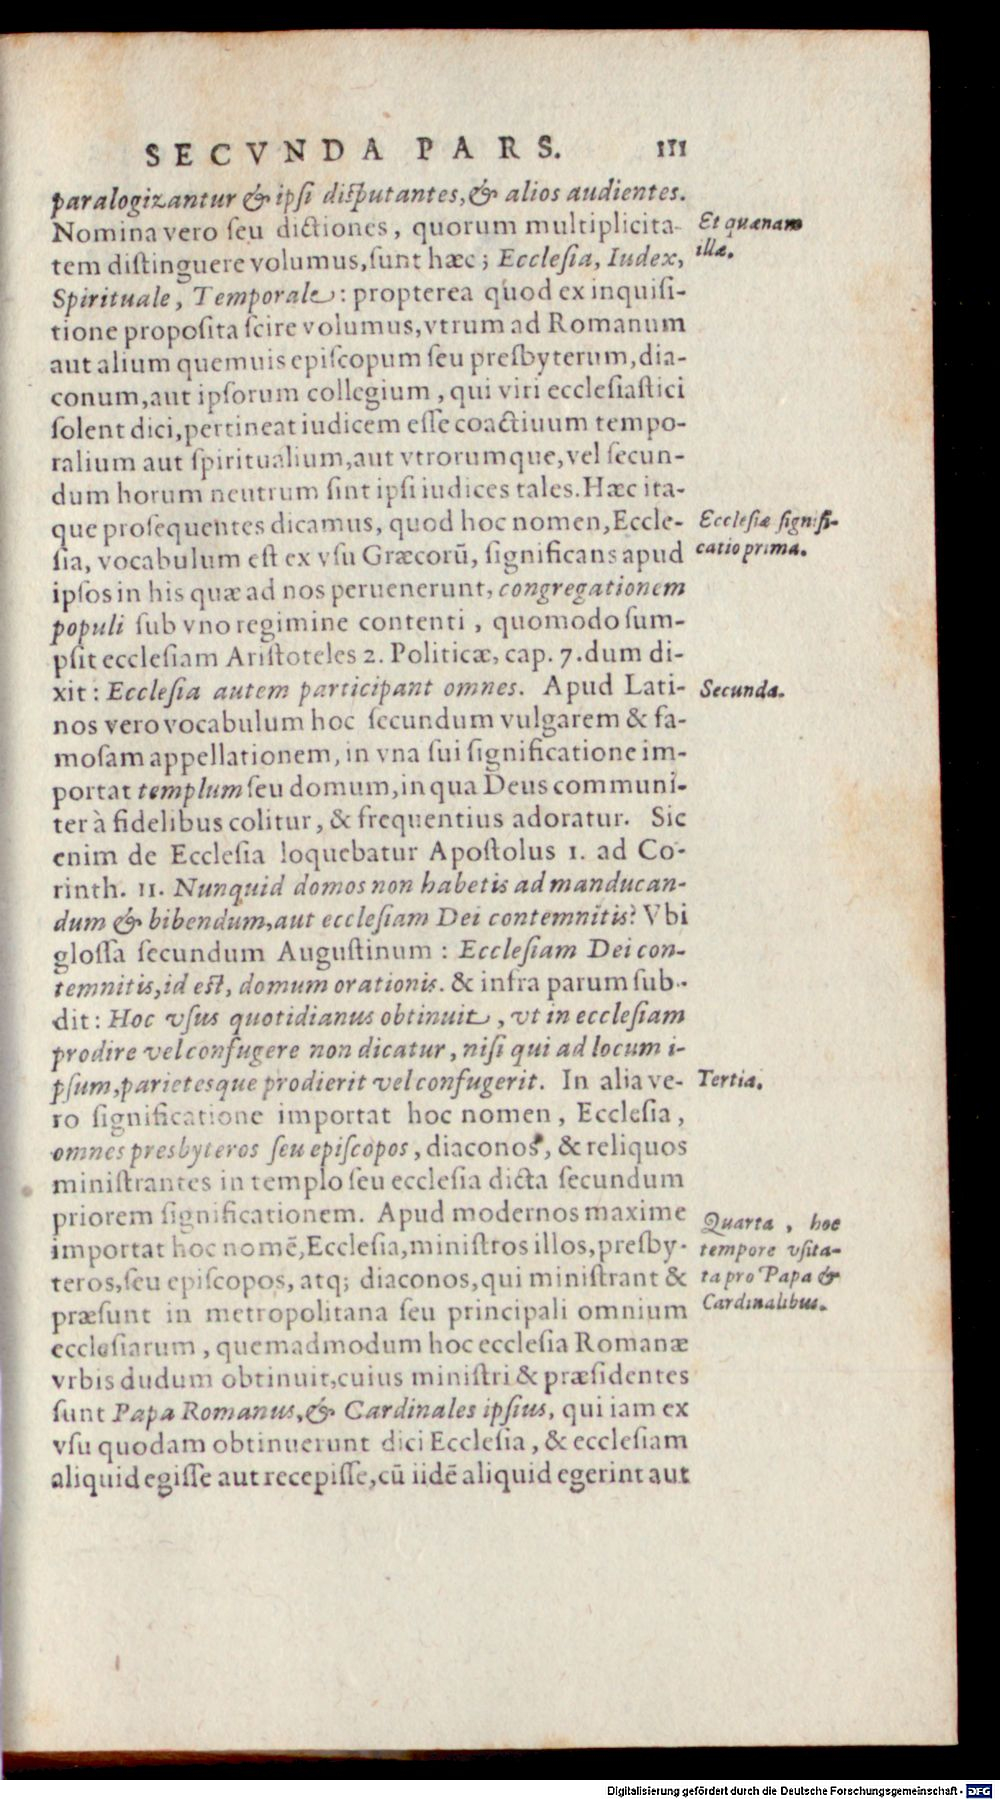 SECVNDA PARS. 111
paralogizantur & ipſi diſputantes, & alios audientes.
Nomina vero ſeu dictiones, quorum multiplicita-
Et quænam
tem diſtinguere volumus, ſunt hæc; Eccleſia, Iudex,
illæ.
Spirituale, Temporale: propterea quod ex inquiſi-
tione propoſita ſcire volumus, vtrum ad Romanum
aut alium quemuis epiſcopum ſeu presbyterum, dia-
conum, aut ipſorum collegium, qui viri eccleſiaſtici
ſolent dici, pertineat iudicem eſſe coactiuum tempo-
ralium aut ſpiritualium, aut vtrorumque, vel ſecun-
dum horum neutrum ſint ipſi iudices tales. Hæc ita-
que proſequentes dicamus, quod hoc nomen, Eccle-
Eccleſiæ ſignifi-
ſia, vocabulum eſt ex vſu Græcorū, ſignificans apud
catio prima.
ipſos in his quæ ad nos peruenerunt, congregationem
populi ſub vno regimine contenti, quomodo ſum-
pſit eccleſiam Ariſtoteles 2. Politicæ, cap. 7. dum di-
xit: Eccleſia autem participant omnes. Apud Lati-
Secunda.
nos vero vocabulum hoc ſecundum vulgarem & fa-
moſam appellationem, in vna ſui ſignificatione im-
portat templum ſeu domum, in qua Deus communi-
ter à fidelibus colitur, & frequentius adoratur. Sic
enim de Eccleſia loquebatur Apoſtolus 1. ad Co-
rinth. 11. Nunquid domos non habetis ad manducan-
dum & bibendum, aut eccleſiam Dei contemnitis? Vbi
gloſſa ſecundum Auguſtinum: Eccleſiam Dei con-
temnitis, id eſt, domum orationis. & infra parum ſub-
dit: Hoc vſus quotidianus obtinuit, vt in eccleſiam
prodire vel confugere non dicatur, niſi qui ad locum i-
pſum, parietesque prodierit vel confugerit. In alia ve-
Tertia.
ro ſignificatione importat hoc nomen, Eccleſia,
omnes presbyteros ſeu epiſcopos, diaconos, & reliquos
miniſtrantes in templo ſeu eccleſia dicta ſecundum
priorem ſignificationem. Apud modernos maxime
Quarta, hoc
importat hoc nomē, Eccleſia, miniſtros illos, presby-
tempore vſita-
teros, ſeu epiſcopos, atq; diaconos, qui miniſtrant &
ta pro Papa &
præſunt in metropolitana ſeu principali omnium
Cardinalibus.
eccleſiarum, quemadmodum hoc eccleſia Romanæ
vrbis dudum obtinuit, cuius miniſtri & præſidentes
ſunt Papa Romanus, & Cardinales ipſius, qui iam ex
vſu quodam obtinuerunt dici Eccleſia, & eccleſiam
aliquid egiſſe aut recepiſſe, cū iidē aliquid egerint aut
Digitalisierung gefördert durch die Deutsche Forschungsgemeinschaft - DFG